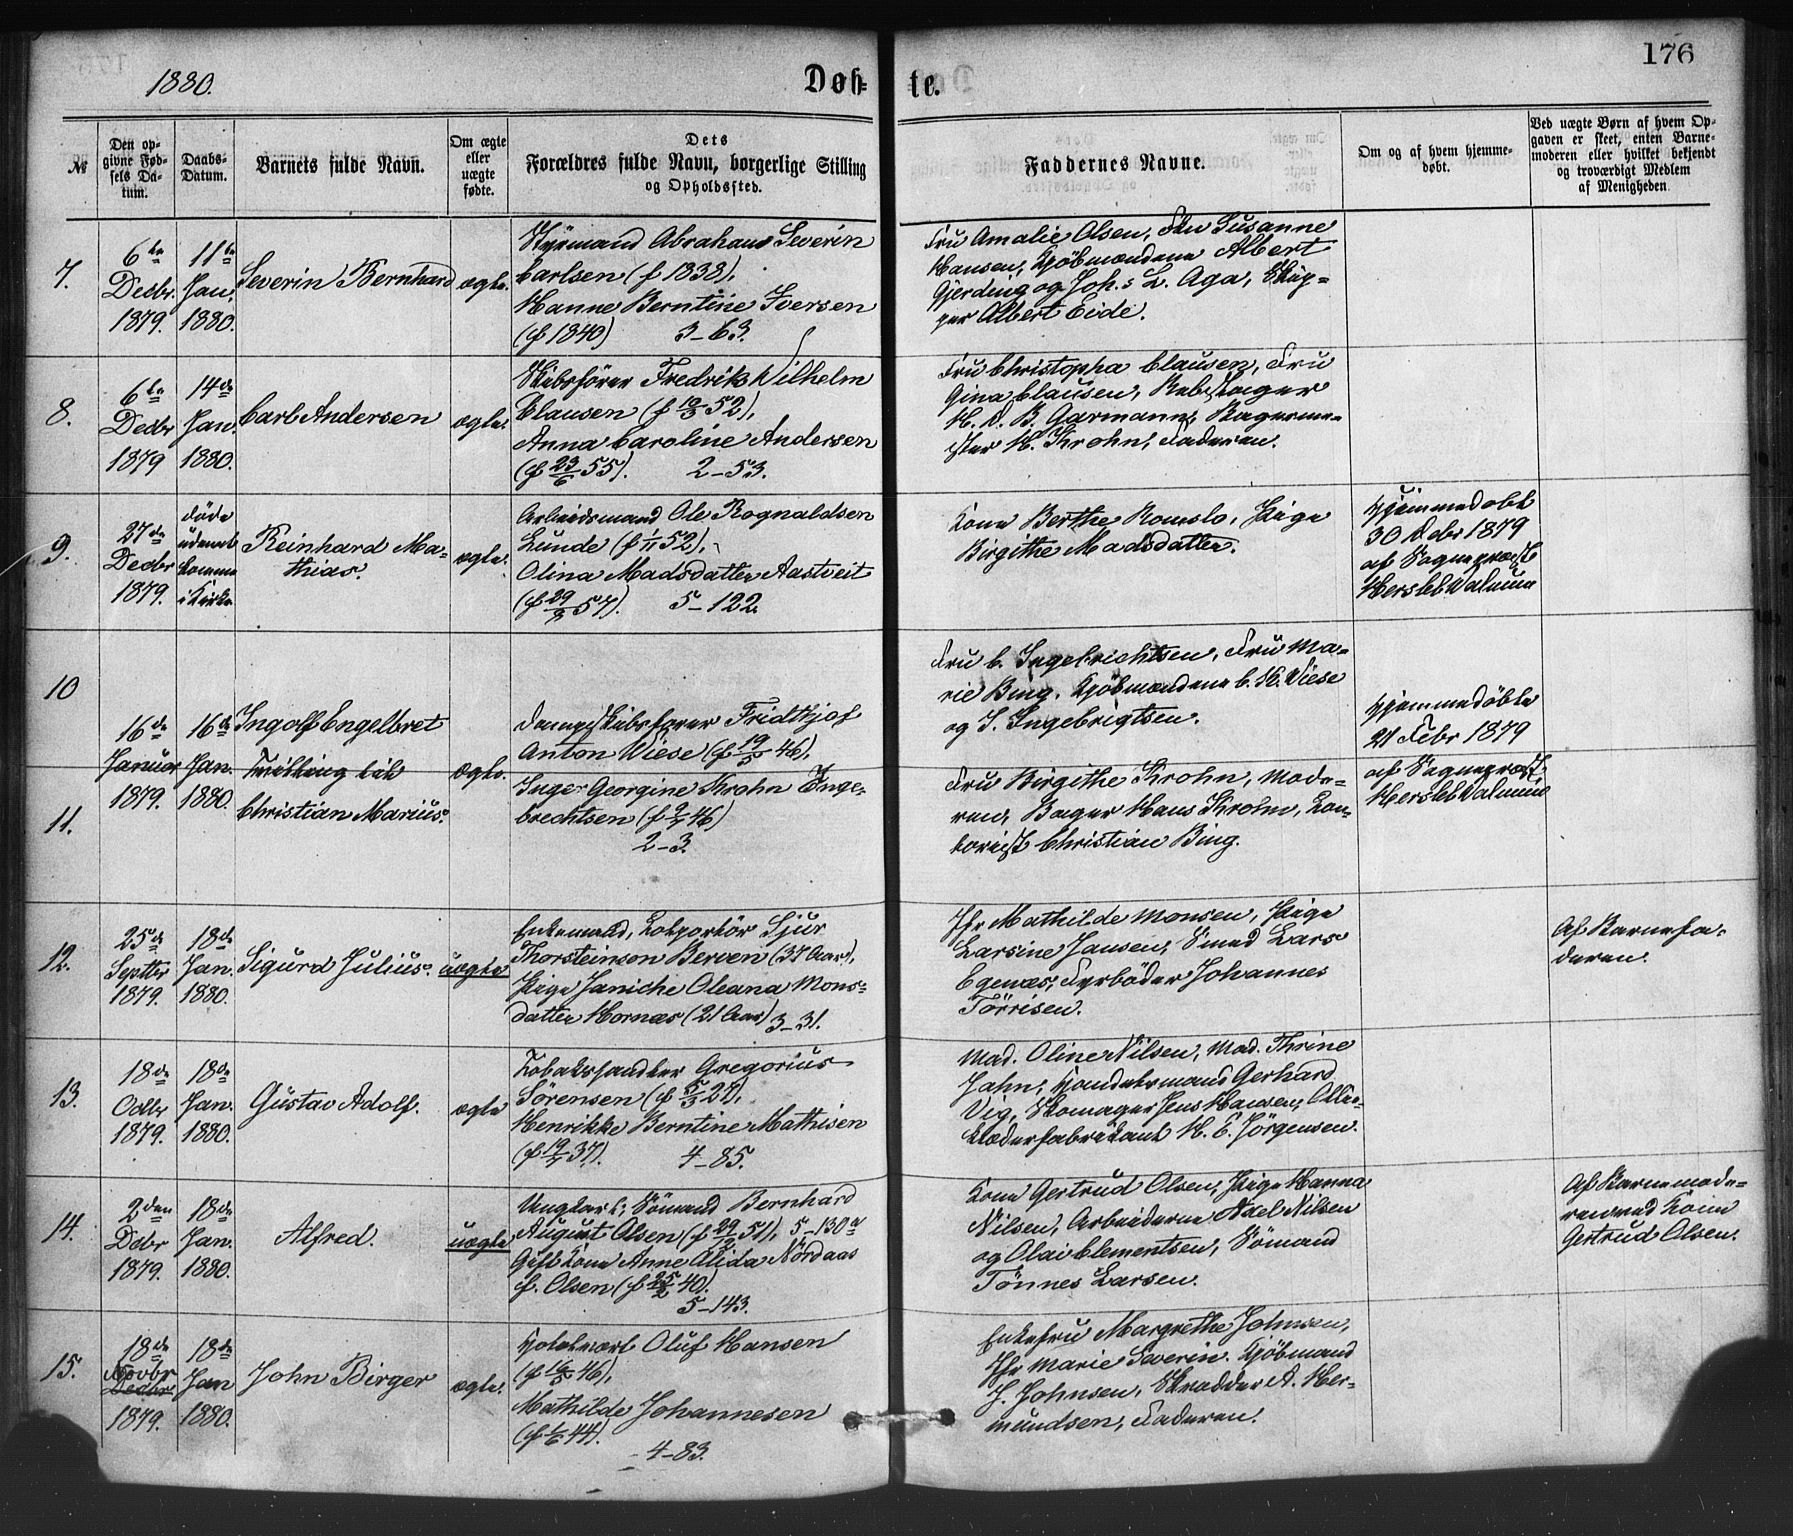 1880.
Døb-
te.
176
№
Den op-
givne Fød-
sels Da-
tum.
Daabs-
Datum.
Barnets fulde Navn.
Om ægte
eller
uægte
fødte.
Dets
Forældres fulde Navn, borgerlige Stilling
og Opholdssted.
Faddernes Navne.
Om og af hvem hjemme-
døbt.
Ved uægte Børn af hvem Op-
gaven er skeet, enten Barne-
moderen eller hvilket bekjendt
og troværdigt Medlem
af Menigheden.
7.
6te
Decbr.
1879.
11te
Jan.
1880.
Severin Bernhard
ægte.
Styrmand Abraham Severin
Carlsen (f 1838),
Hanne Berntine Iversen
(f 1840) 3-63.
Fru Amalie Olsen, Fru Susanne
Hansen, Kjöbmændene Albert
Gjerding og Johs L. Aga, Skip-
per Albert Eide.
8.
6te
Decbr
1879
14de
Jan.
1880.
Carl Andersen
ægte.
Skibsförer Fredrik Wilhelm
Clausen (f 19/3 52),
Anna Caroline Andersen
(f 23/6 55). 2-53.
Fru Christopha Clausen, Fru
Gina Clausen, Rebslager
H. d. B. Garmann, Bagerme-
ster H. Krohn, Faderen.
9.
27de
Decbr
1879.
døde
udenat
komme
i Kirke
Reinhard Ma-
thias.
ægte.
Arbeidsmand Ole Rognaldsen
Lunde (f 1/11 52),
Olina Madsdatter Aastveit
(f 29/9 57). 5-122.
Kone Berthe Romslo, Pige
Birgithe Madsdatter.
Hjemmedøbt
30 Decbr 1879
af Sognepræst
Hersleb Walnum
10
16de
Januar
1879.
16de
Jan.
1880.
Ingolf Engelbret
Tvilling til
ægte.
Dampskibsförer Fridthjof
Anton Wiese (f 19/5 46),
Inger Georgine Krohn Inge-
brechtsen (f 9/7 46)
2-3.
Fru C. Ingebrichtsen, Fru Ma-
rie Bing, Kjöbmændene C. K. Wiese
og S. Ingebrigtsen.
Hjemmedøbte
21 Febr 1879
af Sognepræst
Hersleb Walnum
11.
Christian Marius.
Fru Birgithe Krohn, Mode-
ren, Bager Hans Krohn, Kon-
torist Christian Bing.
12.
25de
Septbr
1879.
18de
Jan.
1880.
Sigurd Julius.
uægte
Enkemand, Kolportör Sjur
Thorsteinson Berven (37 Aar),
Pige Janiche Oleana Mons-
datter Hornæs (21 Aar) 3-31.
Jfr Mathilde Monsen, Pige
Larsine Jansen, Smed Lars
Egenæs, Fyrböder Johannes
Törrisen.
Af Barnefa-
deren.
13.
18de
Octbr
1879.
18de
Jan.
1880.
Gustav Adolf.
ægte
Tobakshandler Gregorius
Sörensen (f 5/3 27),
Henrikke Berntine Mathisen
(f 19/7 37). 4-85.
Mad. Oline Nilsen, Mad. Thrine
Jahn, Handelsmand Gerhard
Vig, Skomager Jens Hansen, Olie-
klæderfabrikant H. E. Jörgensen.
14.
2den
Decbr
1879.
18de
Jan.
1880.
Alfred.
uægte
Ungkarl, Sömand Bernhard
August Olsen (f 29/12 51), 5-130a
Gift Kone Anne Alida Nordaas
f. Olsen (f 25/2 40).
5-143.
Kone Gertrud Olsen, Pige Hanna
Nilsen, Arbeiderne Nael Nilsen
og Olai Clementsen, Sömand
Tönnes Larsen.
Af Barnemode-
ren ved Kone
Gertrud Olsen.
15.
18de
Novbr
Decbr
1879.
18de
Jan
1880.
John Birger
ægte.
Hotelvært Oluf Hansen
(f 16/5 46),
Mathilde Johannesen
(f 1/6 44).
4-83.
Enkefru Margrethe Johnsen,
Jfr Marie Severin. Kjöbmand
J. Johnsen, Skrædder A. Her-
mundsen, Faderen.